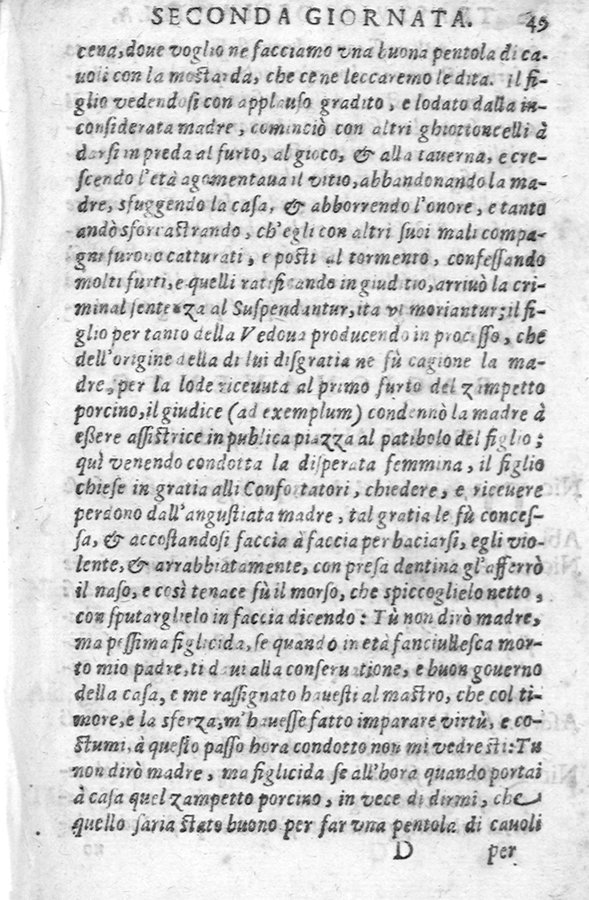 SECONDA GIORNATA. 49
cena, doue voglio ne facciamo vna buona pentola di ca-
uoli con la mostarda, che ce ne leccaremo le dita. il fi-
glio vedendosi con applauso gradito, e lodato dalla in-
considerata madre, cominciò con altri ghiottoncelli à
darsi in preda al furto, al gioco, & alla tauerna, e cre-
scendo l'età agomentaua il vitio, abbandonando la ma-
dre, sfuggendo la casa, & abborrendo l'onore, e tanto
andò sforcastrando, ch'egli con altri suoi mali compa-
gni furono catturati, e posti al tormento, confessando
molti furti, e quelli ratificando in giuditio, arriuò la cri-
minal sentenza al Suspendantur, ita vt moriantur; il fi-
glio per tanto della Vedoua producendo in processo, che
dell'origine della di lui disgratia ne fù cagione la ma-
dre, per la lode riceuuta al primo furto del zampetto
porcino, il giudice (ad exemplum) condennò la madre à
essere assistrice in publica piazza al patibolo del figlio;
quì venendo condotta la disperata femmina, il figlio
chiese in gratia alli Confortatori, chiedere, e riceuere
perdono dall'angustiata madre, tal gratia le fù conces-
sa, & accostandosi faccia à faccia per baciarsi, egli vio-
lente, & arrabbiatamente, con presa dentina gl'afferrò
il naso, e così tenace fù il morso, che spiccoglielo netto,
con sputarglielo in faccia dicendo: Tù non dirò madre,
ma pessima figlicida, se quando in età fanciullesca mor-
to mio padre, ti daui alla conseruatione, e buon gouerno
della casa, e me rassignato hauesti al mastro, che col ti-
more, e la sferza, m'hauesse fatto imparare virtù, e co-
stumi, à questo passo hora condotto non mi vedresti: Tu
non dirò madre, ma figlicida se all'hora quando portai
à casa quel zampetto porcino, in vece di dirmi, che
quello saria stato buono per far vna pentola di cauoli
D per